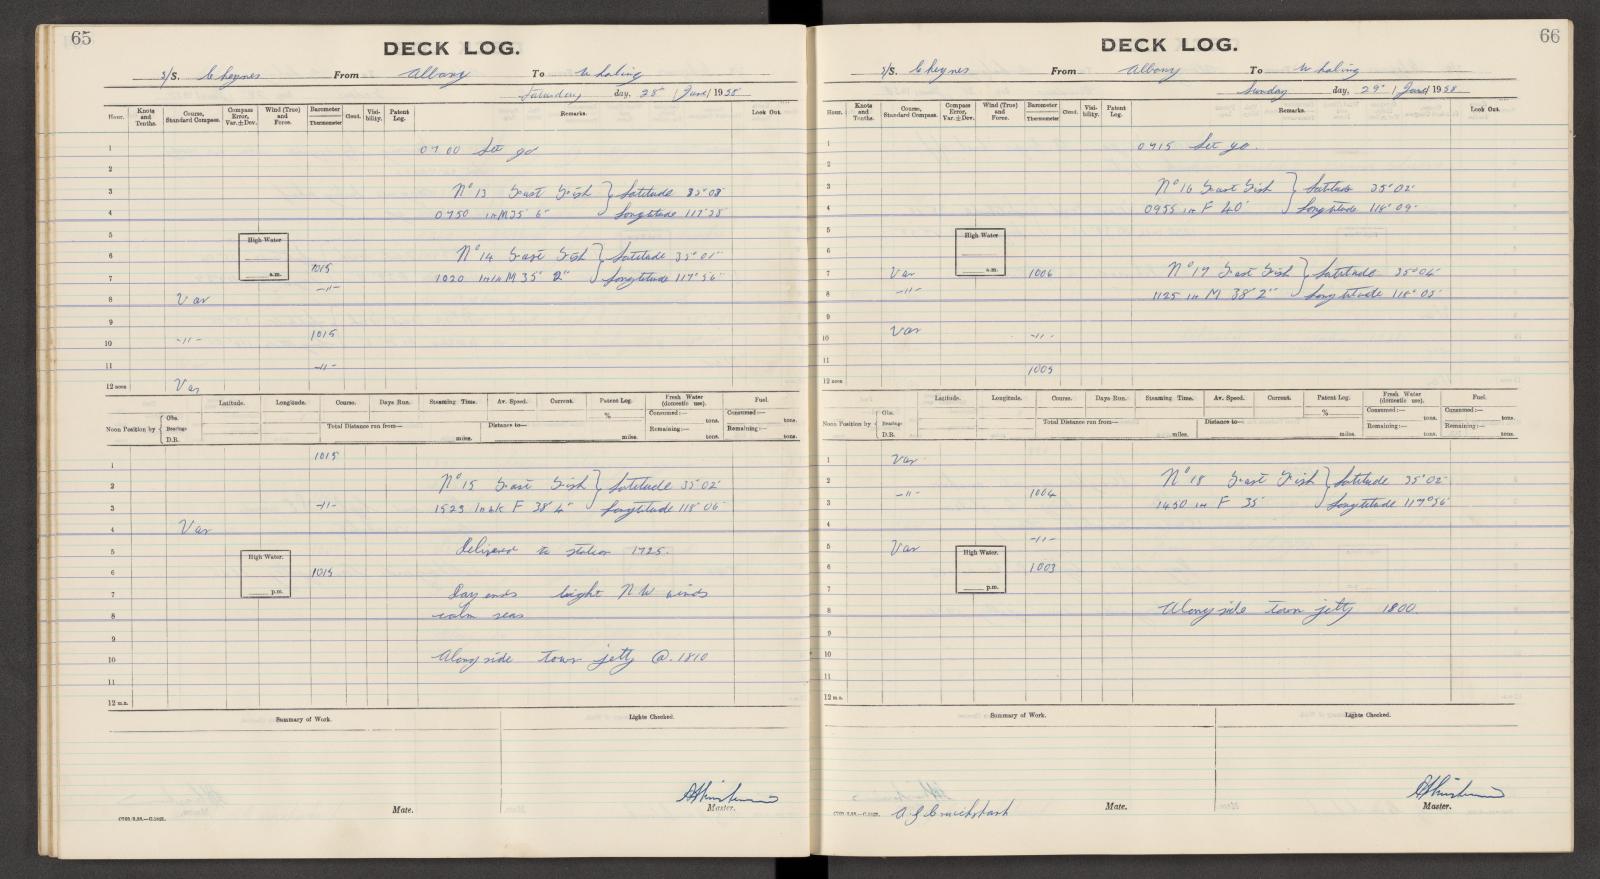 65
DECK LOG.
S/S. Cheynes From Albany To Whaling
Saturday day, 28" / June / 1958
Hour. Knots and Tenths. Course, Standard Compass. Compass Error, Var.±Dev. Wind (True) and Force. Barometer Thermometer Cloud. Visibility. Patent Log. Remarks. Look Out.
1 0700 Let go
2
3 No 13 Fast Fish } Latitude 35° 08'
4 0750 in M 35' 6" Longitude 117° 58'
5
High Water
6 No 14 Fast Fish } Latitude 35° 01'
a.m. 1015
7 1020 M 35' 2" Longitude 117° 56'
-11-
8 Var
9
10 -11- 1015
11 -11-
12 noon Var
Latitude. Longitude. Course. Days Run. Steaming Time. Av. Speed. Current. Patent Log. Fresh Water (domestic use). Fuel.
Noon Position by { Obs. Bearings D.R. % Consumed:— tons. Consumed:— tons.
Total Distance run from— miles. Distance to— miles. Remaining:— tons. Remaining:— tons.
1 1015
2 No 15 Fast Fish } Latitude 35° 02'
3 -11- 1525 F 38' 4" Longitude 118° 06'
4 Var
5 Delivered to station 1725.
High Water.
6 1015
p.m.
7 Day ends Light NW winds
8 calm seas
9
10 Alongside town jetty @ 1810
11
12 m.n.
Summary of Work. Lights Checked.
Mate. Master.
66
DECK LOG.
S/S. Cheynes From Albany To Whaling
Sunday day, 29" / June / 1958
Hour. Knots and Tenths. Course, Standard Compass. Compass Error, Var.±Dev. Wind (True) and Force. Barometer Thermometer Cloud. Visibility. Patent Log. Remarks. Look Out.
1 0715 Let go.
2
3 No 16 Fast Fish } Latitude 35° 02'
4 0955 in F 40' Longitude 118° 09'
5
High Water
6
a.m.
7 Var 1006 No 17 Fast Fish } Latitude 35° 04'
8 -11- 1125 in M 38' 2" Longitude 118° 05'
9
10 Var -11-
11 1005
12 noon
Latitude. Longitude. Course. Days Run. Steaming Time. Av. Speed. Current. Patent Log. Fresh Water (domestic use). Fuel.
Noon Position by { Obs. Bearings D.R. % Consumed:— tons. Consumed:— tons.
Total Distance run from— miles. Distance to— miles. Remaining:— tons. Remaining:— tons.
1 Var
2 No 18 Fast Fish } Latitude 35° 02'
3 -11- 1004 1450 in F 35' Longitude 117° 56'
4
5 Var -11-
High Water.
6 1003
7
p.m.
8 Alongside town jetty 1800.
9
10
11
12 m.n.
Summary of Work. Lights Checked.
Mate. Master.